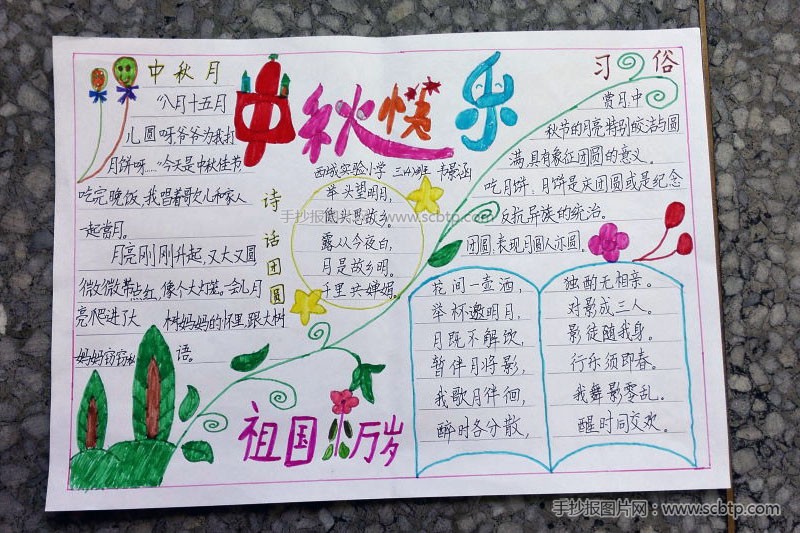 中秋快乐
西城实验小学 三(4)班
中秋月
"八月十五月
儿圆呀,爷爷为我打
月饼呀……"今天是中秋佳节,
吃完晚饭,我唱着歌儿和家人
一起赏月。
月亮刚刚升起,又大又圆
微微带点红,像个大灯笼。一会儿月
亮爬进了大 树妈妈的怀里,跟大树
妈妈窃窃私 语。
诗话团圆
举头望明月,
低头思故乡。
露从今夜白,
月是故乡明。
千里共婵娟。
习俗
赏月,中
秋节的月亮特别皎洁与圆
满,具有象征团圆的意义。
吃月饼,月饼是庆团圆或是纪念
反抗异族的统治。
团圆,表现月圆人亦圆。
花间一壶酒,
举杯邀明月,
月既不解饮,
暂伴月将影,
我歌月徘徊,
醉时各分散,
独酌无相亲。
对影成三人。
影徒随我身。
行乐须即春。
我舞影零乱。
醒时同交欢。
祖国万岁
手抄报图片网 - www.scbtp.com
手抄报图片网 - www.scbtp.com